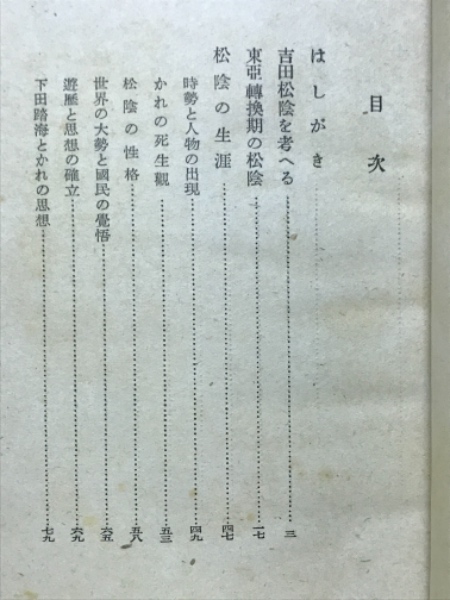 目次
はしがき
吉田松陰を考へる……三
東亞轉換期の松陰……一七
松陰の生涯……四七
時勢と人物の出現……四九
かれの死生觀……五三
松陰の性格……五八
世界の大勢と國民の覺悟……六五
遊歷と思想の確立……六九
下田踏海とかれの思想……七九